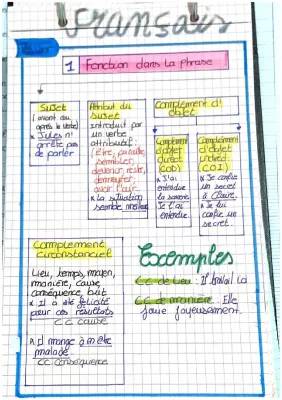 Français
1 Fonction dans la phrase
Sujet
(avant ou
après le verbe)
Jules n'
arrête pas
de parler
Attribut du
sujet
introduit par
un verbe
attributif:
(être, paraître
sembler,
devenir, rester,
demeurer,
avoir l'air
La situation
semble
Complément d'
objet
Complément
d'objet
direct
(COD)
J'ai
entendue
la
Je l'ai
entendue.
Complément
d'objet
indirect
(COI)
Se confie
un secret
à Claire.
Je lui
confie un
secret.
Complement
circonstanciel
Lieu, temps, moyen,
manière, cause,
conséquence, but
Il a été félicité
pour ces résultats
CC cause
Il mange à m être
malade.
CC conséquence
Exemples
CC de Lieu: Il la
CC de manière: Elle
joue joyeusement.